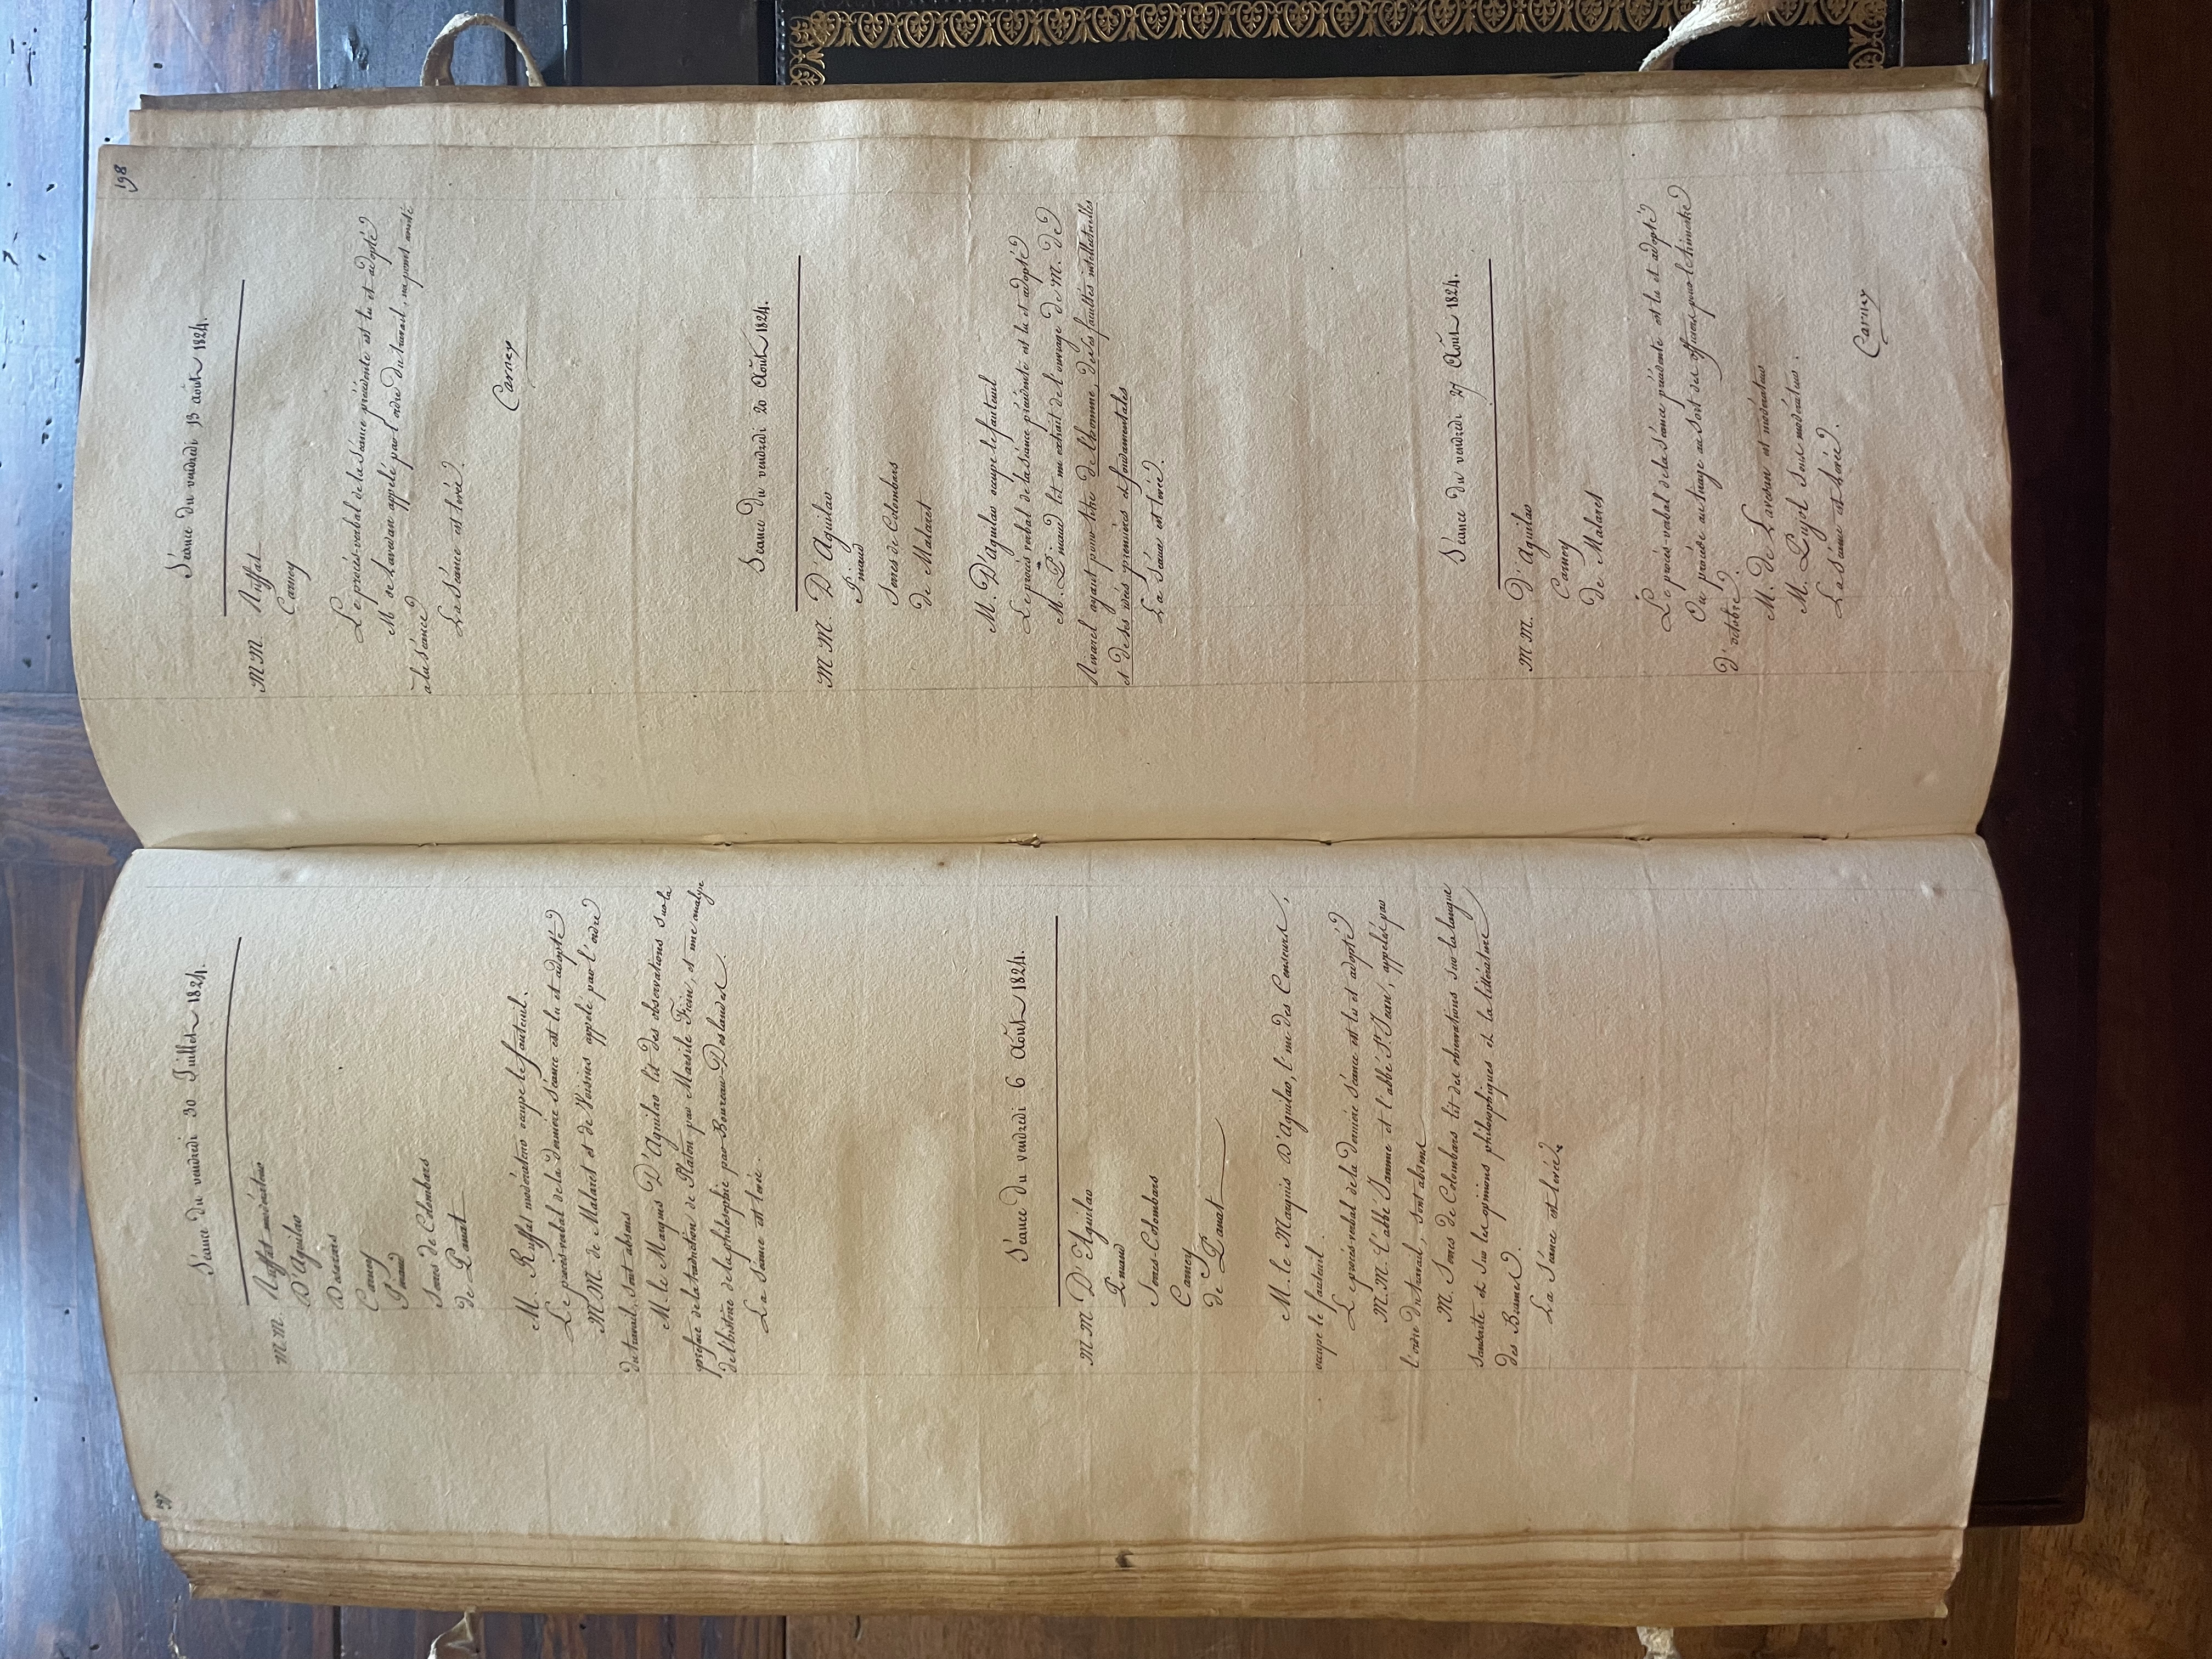 197
Séance du vendredi 30 Juillet 1824.
M.M. Ruffat modérateur
D'Aguilar
Desescars
Carney
Pinaud
Jones de Colombars
de Panat
M. Ruffat modérateur occupe le fauteuil.
Le procès-verbal de la dernière Séance est lu et adopté
M.M. de Malaret et de Voisins appelé par l'ordre
du travail, sont absens
M. le Marquis D'Aguilar lit des observations sur la
préface de la traduction de Platon par Marsile Ficin, et une analyse
de l'histoire de la philosophie par Boureau-Deslandes.
La Séance est levée.
Séance du vendredi 6 Août 1824.
M.M. D'Aguilar
Pinaud
Jones-Colombars
Carney
de Panat
M. le Marquis D'Aguilar, l'un des Censeurs,
occupe le fauteuil.
Le procès-verbal de la dernière Séance est lu et adopté
M.M. l'abbé Jamme et l'abbé St. Jean, appelés par
l'ordre du travail, sont absens
M. Jones de Colombars lit des observations sur la langue
Sanscrite et sur les opinions philosophiques et la littérature
des Brames.
La Séance est levée.
198
Séance du vendredi 13 août 1824.
M.M. Ruffat
Carney
Le procès-verbal de la Séance précédente est lu et adopté
M de Lavedan appelé par l'ordre du travail, na point assisté
a la Séance
La Séance est levée.
Carney
Séance du vendredi 20 Août 1824.
M.M. D'Aguilar
Pinaud
Jones de Colombars
de Malaret
M. D'Aguilar occupe le fauteuil
Le procès verbal de la Séance précédente est lu et adopté
M. Pinaud lit un extrait de l'ouvrage de M. de
Rivarol ayant pour titre de l'homme, de ses facultés intellectuelles
et de ses idées premières et fondamentales
La Séance est levée.
Séance du vendredi 27 Août 1824.
M.M. D'Aguilar
Carney
de Malaret
Le procès-verbal de la Séance précédente est lu et adopté
On procède au tirage au sort des officiers pour le trimestre
d'octobre.
M. de Lavedan est modérateur
M. Pujol sous modérateur.
La Séance est levée.
Carney